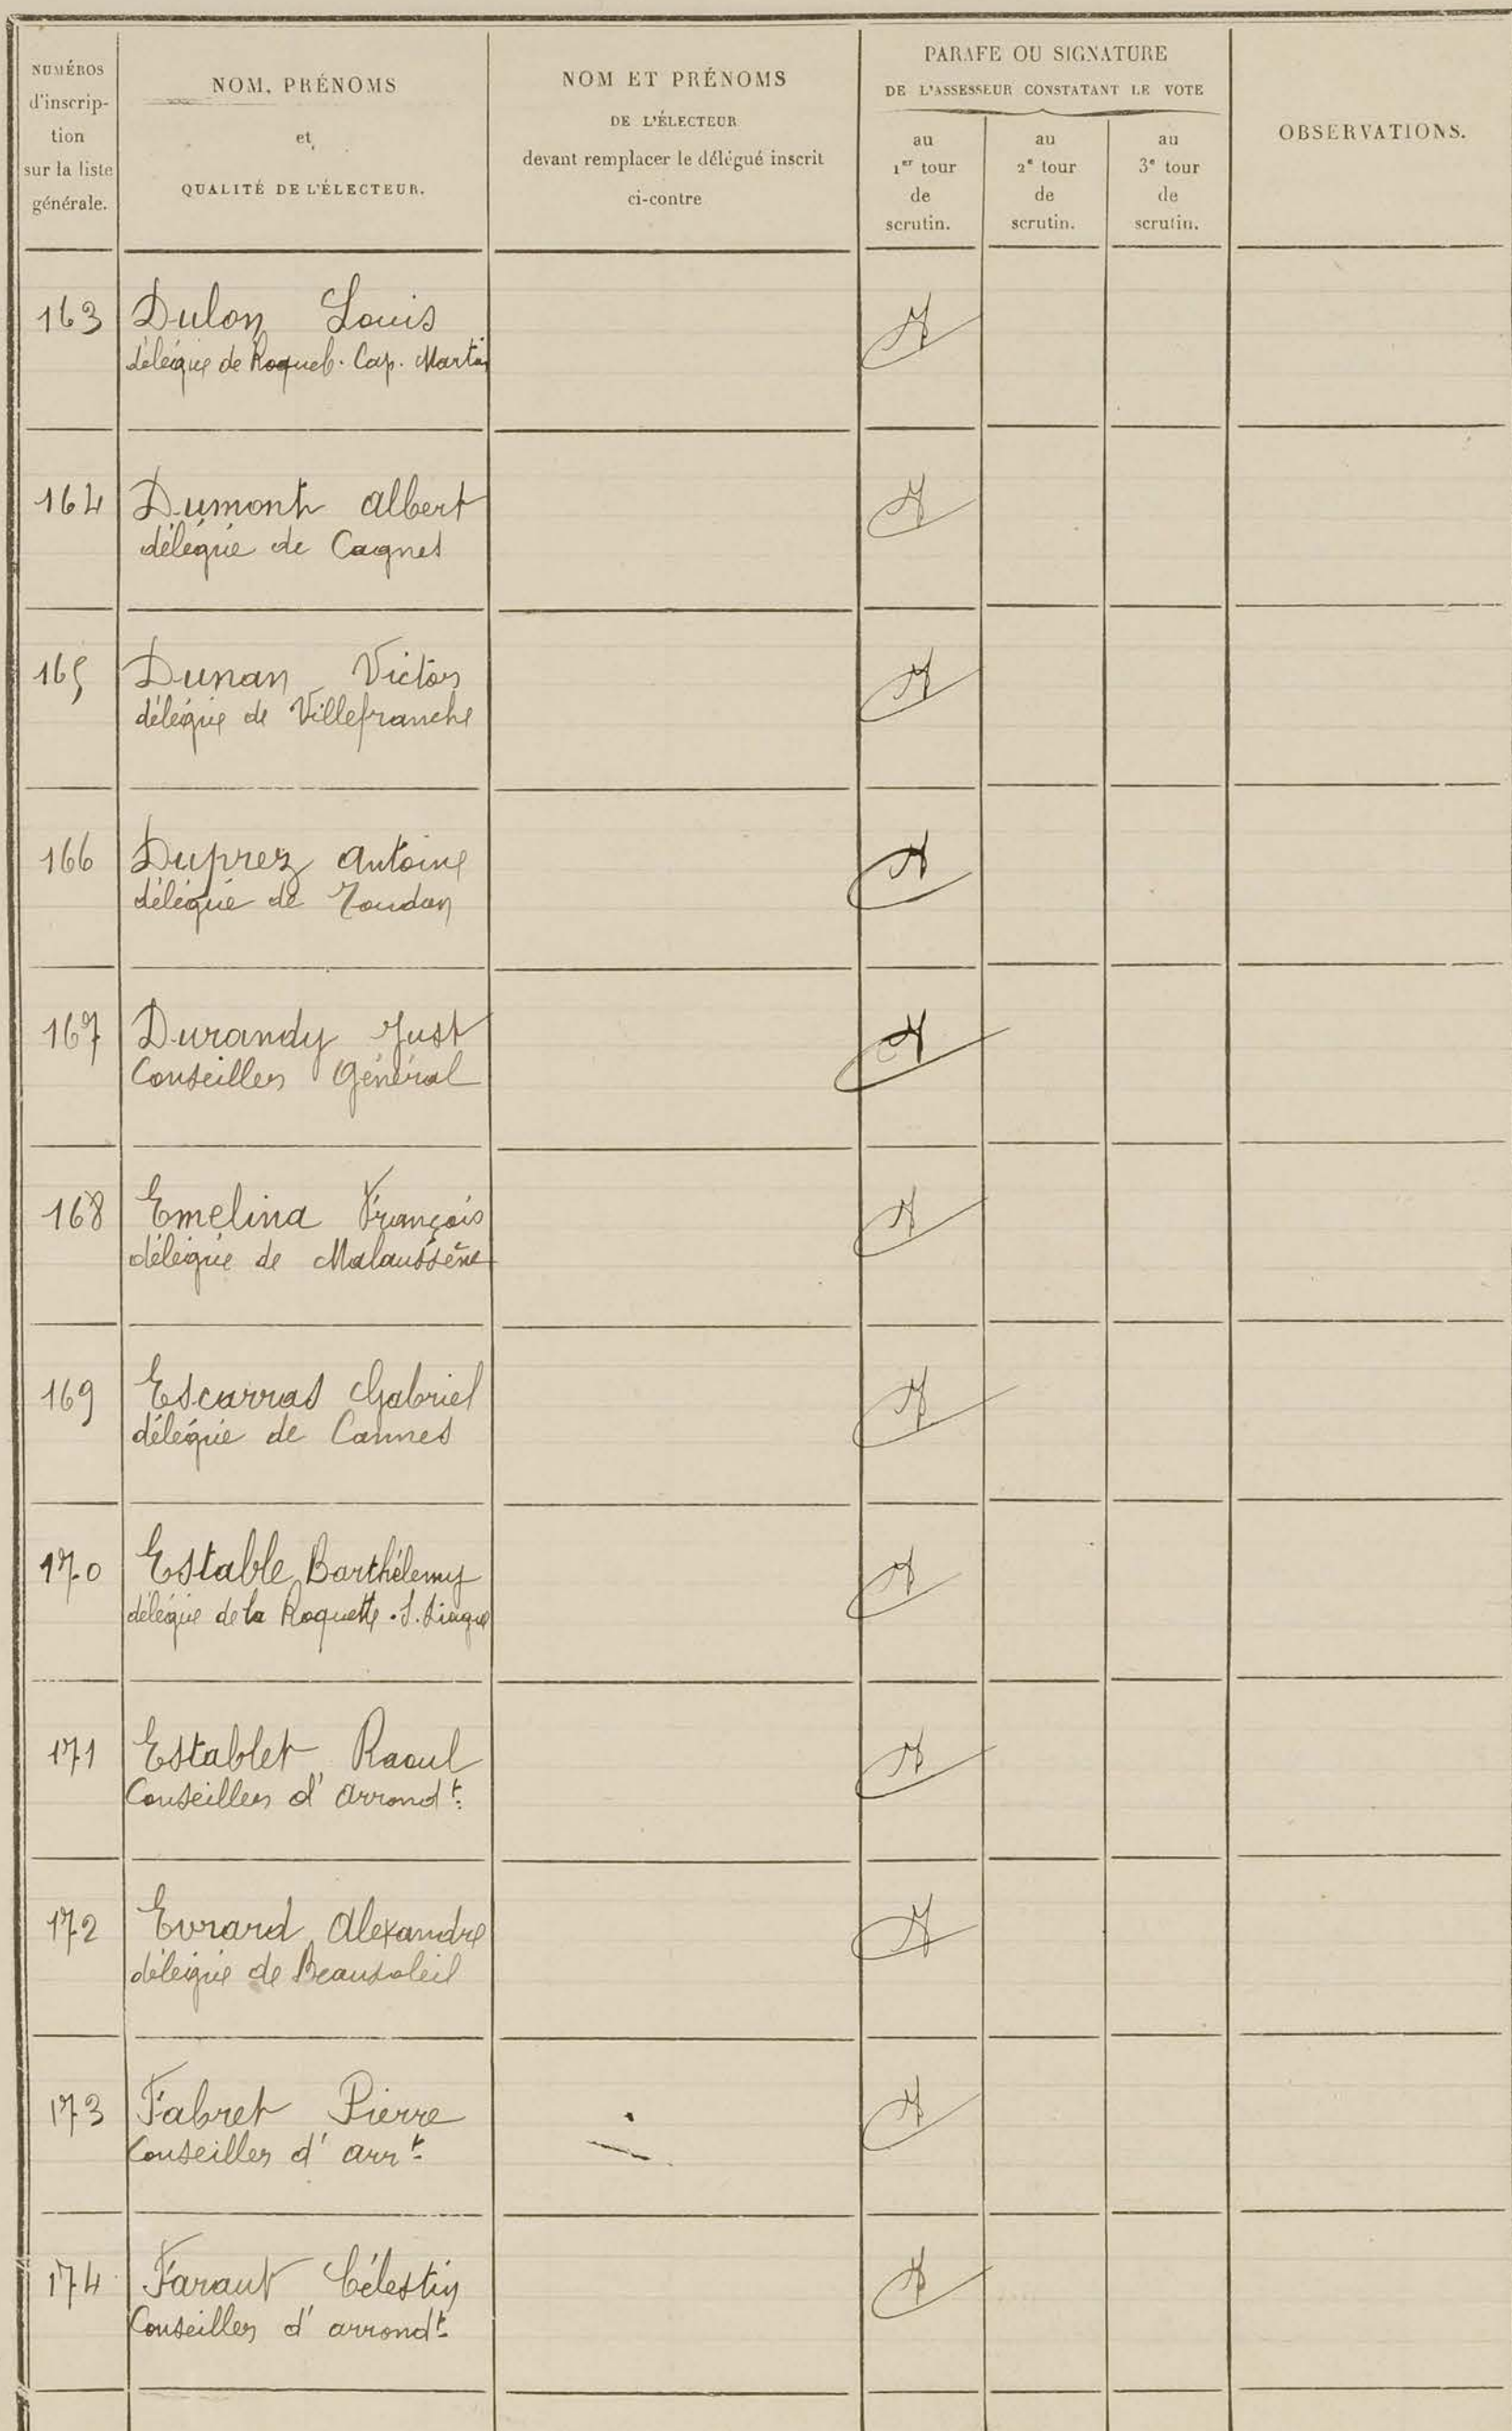 NUMÉROS
d'inscrip-
tion
sur la liste
générale.
NOM, PRÉNOMS
et
QUALITÉ DE L'ÉLECTEUR.
NOM ET PRÉNOMS
DE L'ÉLECTEUR
devant remplacer le délégué inscrit
ci-contre
PARAFE OU SIGNATURE
DE L'ASSESSEUR CONSTATANT LE VOTE
au
1er tour
de
scrutin.
au
2e tour
de
scrutin.
au
3e tour
de
scrutin.
OBSERVATIONS.
163 Dulon Louis
délégué de Roqueb. Cap. Martin
164 Dumont Albert
délégué de Cagnes
165 Dunan Victor
délégué de Villefranche
166 Duprez Antoine
délégué de Toudon
167 Durandy Just
Conseiller Général
168 Emelina François
délégué de Malaussène
169 Escarras Gabriel
délégué de Cannes
170 Estable Barthélemy
délégué de la Roquette. S. Siagne
171 Establet Raoul
Conseiller d'arrondt.
172 Evrard Alexandre
délégué de Beausoleil
173 Fabret Pierre
Conseiller d'arrt
174 Faraut Célestin
Conseiller d'arrondt